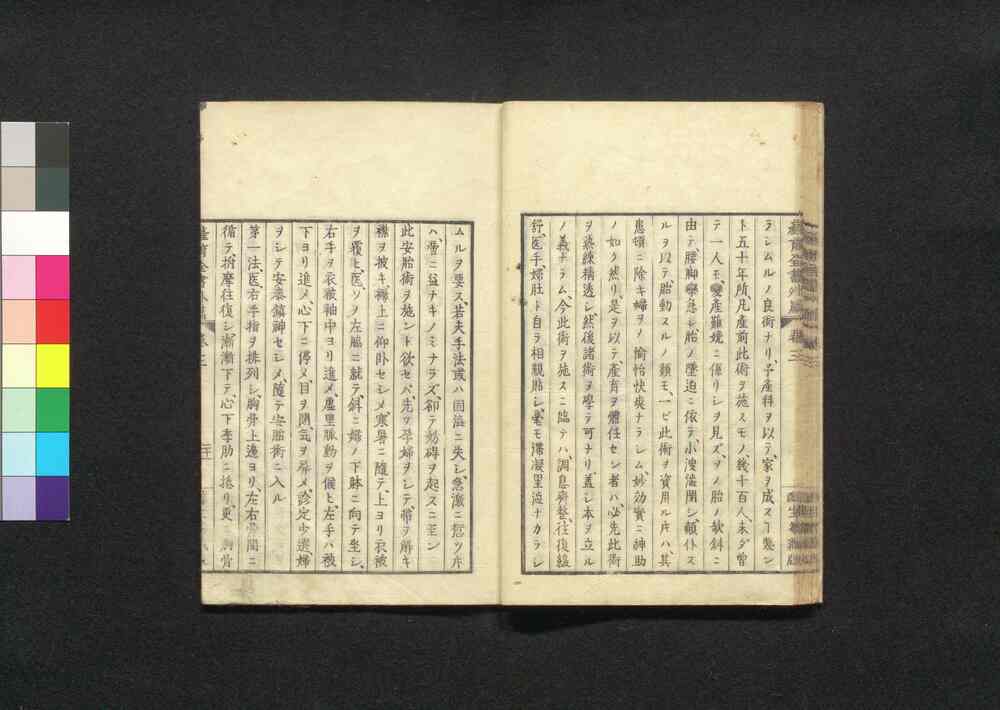 ラシムルノ良術ナリ、予産科ヲ以テ、家ヲ成スヿ、製ン
ト五十年所、凡産前此術ヲ施スモノ、幾十百人、未ダ曾
テ一人モ、変産難娩ニ係リシヲ見ズ、ソノ胎ノ欹斜ニ
由テ、腰脚攣急シ、胎ノ墜迫ニ依テ、小溲濇閉シ、顛仆ス
ルヲ以テ、胎動スルノ類モ、一ビ此術ヲ資用ル片ハ、其
患頓ニ除キ、婦ヲノ愉怡快爽ナラシム、妙効實ニ神助
ノ如ク然リ、是ヲ以テ、産育ヲ體任セン者ハ、必先此術
ヲ熟練精透シ、然後諸術ヲ學テ可ナリ、蓋シ本ヲ立ル
ノ義ナラム、今此術ヲ施スニ臨テハ、調息齊整、往復緩
舒、医手、婦肚ト自ラ相親貼シ、毫モ滞凝里澁ナカラシ
ムルヲ要ス、若夫手法或ハ固澁ニ失シ、急激ニ愆ツ片
ハ、啻ニ益ナキノミナラズ、却テ妨碍ヲ起スニ至ン
此安胎術ヲ施ント欲セバ、先ヅ孕婦ヲシテ、帯ヲ解キ
襟ヲ披キ、褥上ニ仰卧セシメ、寒暑ニ随テ、上ヨリ衣被
ヲ覆ヒ、医ソノ左脇ニ就テ、斜ニ婦ノ下躰ニ向テ坐シ、
右手ヲ衣被袖中ヨリ進メ、虚里脈動ヲ候ヒ、左手ハ被
下ヨリ進メ、心下ニ停メ、目ヲ閉、気ヲ屏メ、診定少選、婦
ヲシテ安泰鎮神セシメ、随テ安胎術ニ入ル
第一法、医右手指ヲ排列シ、胸骨上邉ヨリ、左右骨間ニ
循テ、拊摩往復シ、漸漸下テ、心下季肋ニ捲リ、更ニ胸骨